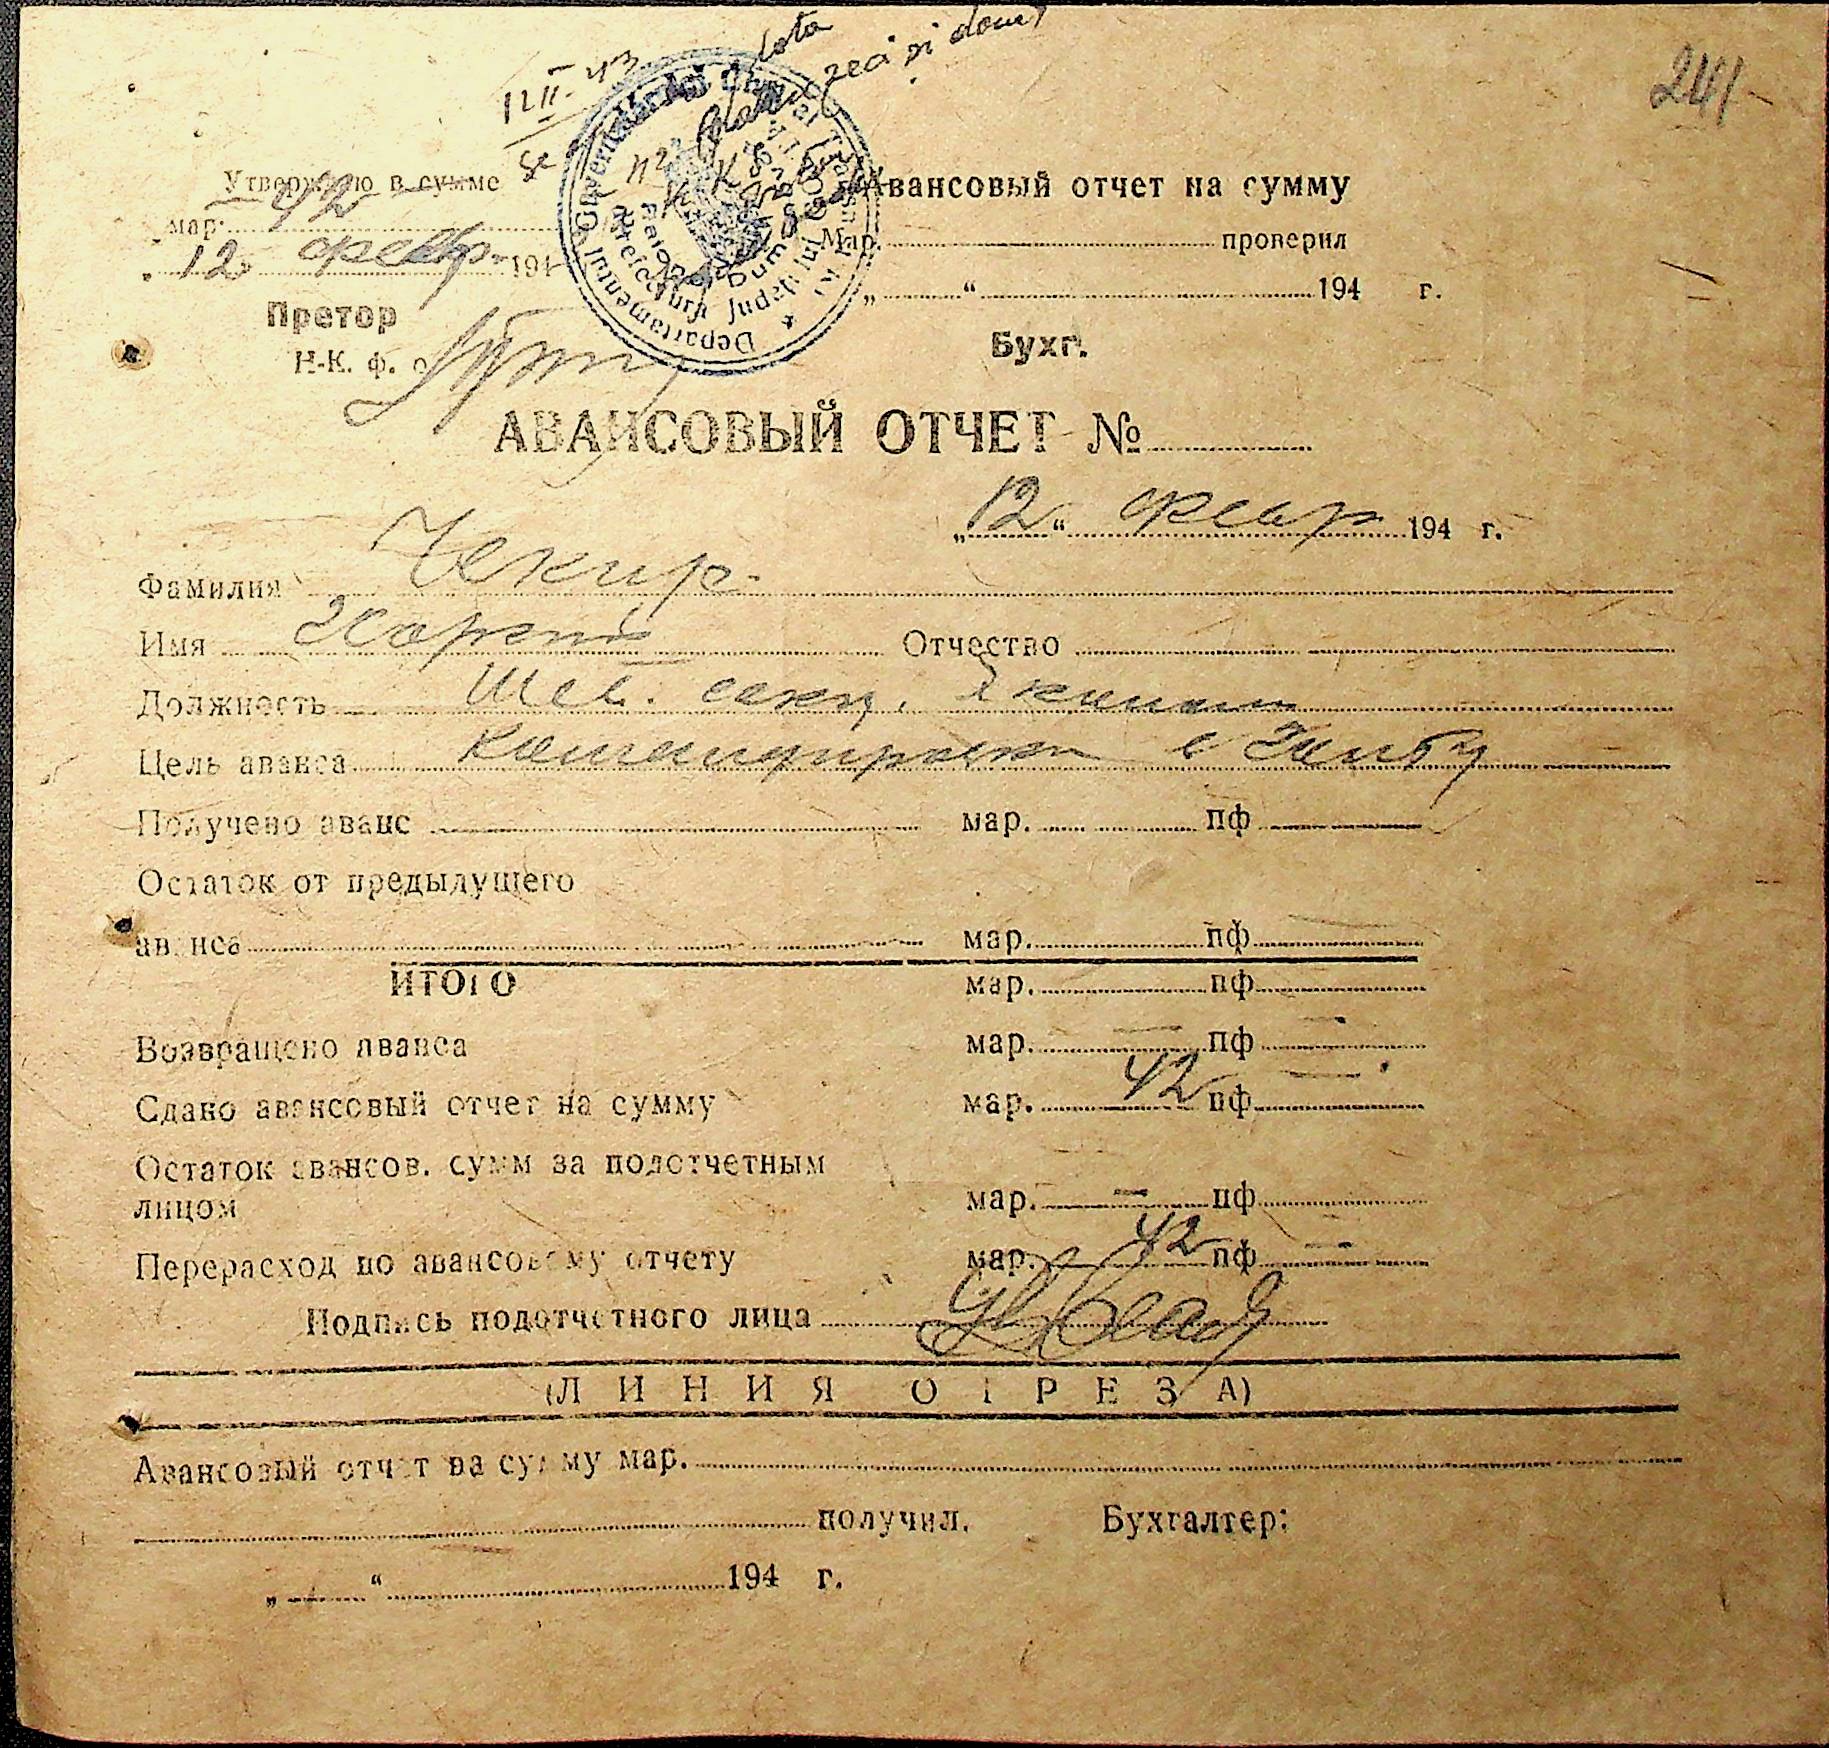 241
12 II 43
Утверждаю в сумме
42
мар.
12 февр. 194
Претор
Н-К. ф. о
Авансовый отчет на сумму
Мар. проверил
„ “ 194 г.
Бухг.
АВАНСОВЫЙ ОТЧЕТ №
„12“ февр 194 г.
Фамилия Чекир
Имя Отчество
Должность
Цель аванса Командировка в
Получено аванс мар. пф
Остаток от предыдущего
аванса мар. пф
ИТОГО мар. пф
Возвращено аванса мар. — пф —
Сдано авансовый отчет на сумму мар. 42 пф —
Остаток авансов. сумм за подотчетным
лицом мар. — пф
Перерасход по авансовому отчету мар. 42 пф —
Подпись подотчетного лица
(ЛИНИЯ ОТРЕЗА)
Авансовый отчет на сумму мар.
получил. Бухгалтер:
„ “ 194 г.